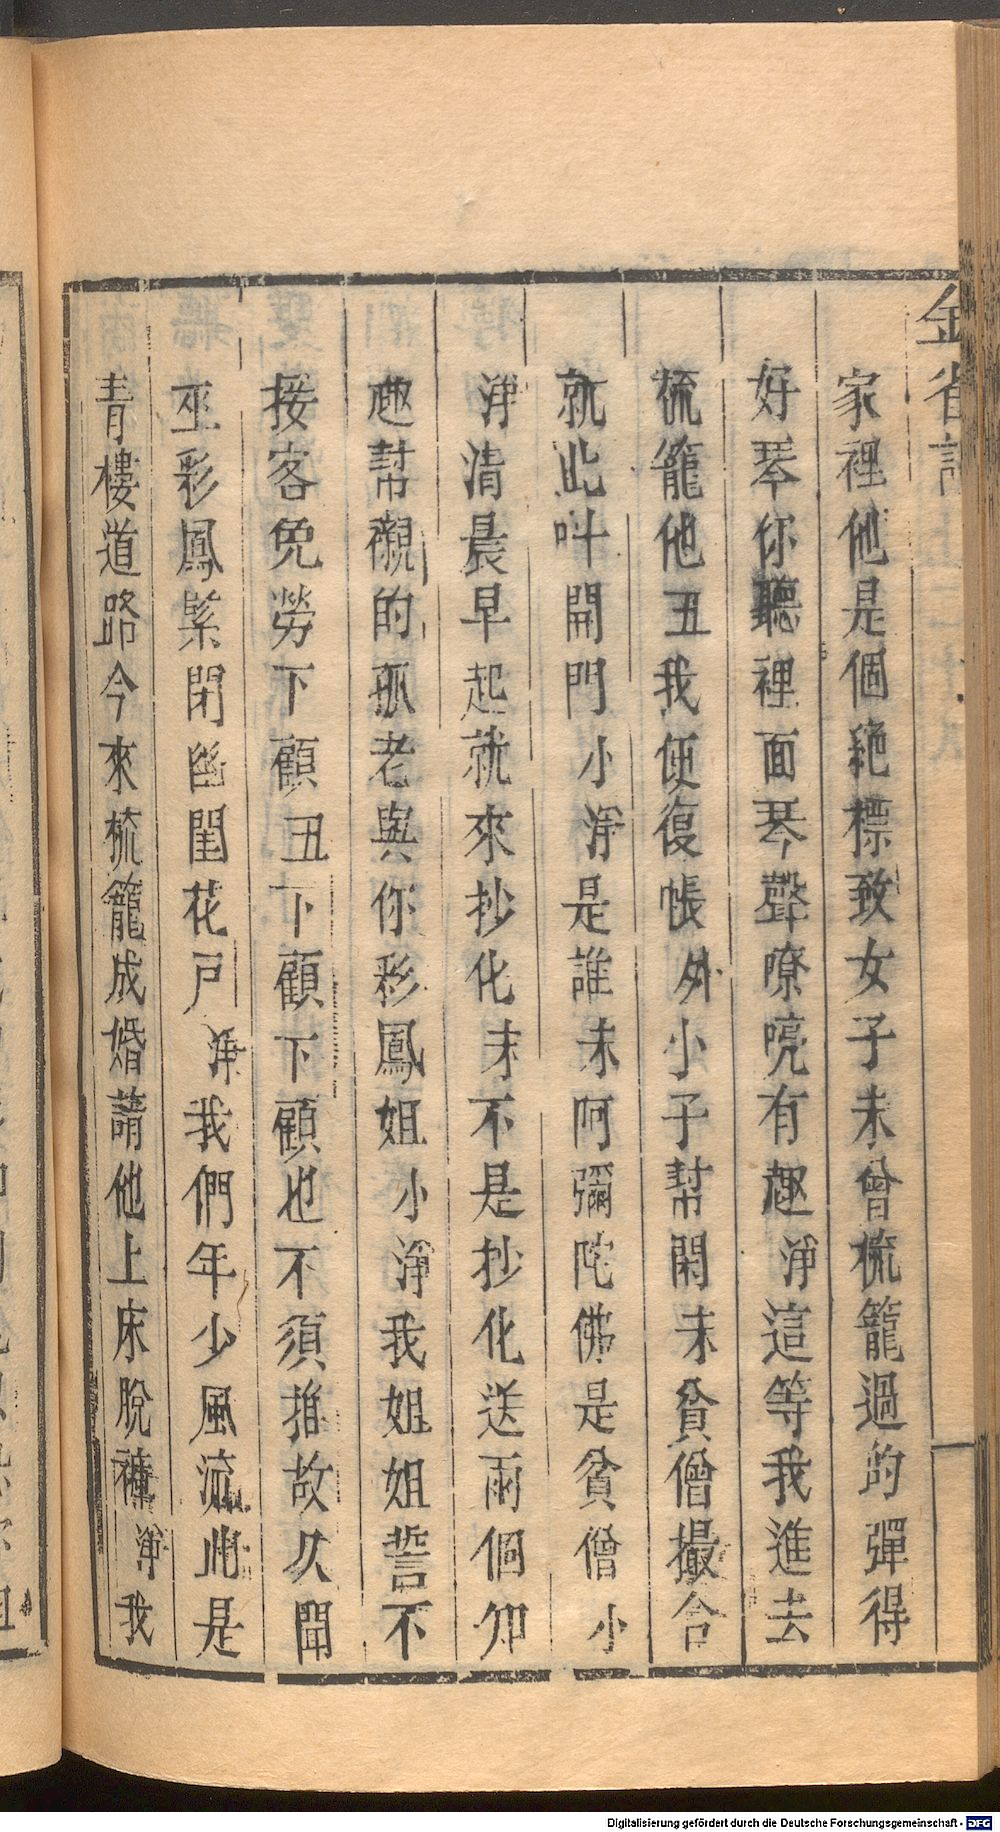 金雀記
家裡他是個絶標致女子未曾梳籠過的彈得
好琴你聽裡面琴聲嘹喨有趣淨這等我進去
梳籠他丑我便復帳外小子幇閑末貧僧撮合
就此叫開門小淨是誰末阿彌陀佛是貧僧小
淨清晨早起就來抄化末不是抄化送兩個知
趣幇襯的孤老與你彩鳳姐小淨我姐姐誓不
接客免勞下顧丑下顧下顧也不須推故久聞
巫彩鳳緊閉幽閨花戸淨我們年少風流此是
青樓道路今來梳籠成婚請他上床脫褲淨我
Digitalisierung gefördert durch die Deutsche Forschungsgemeinschaft - DFG